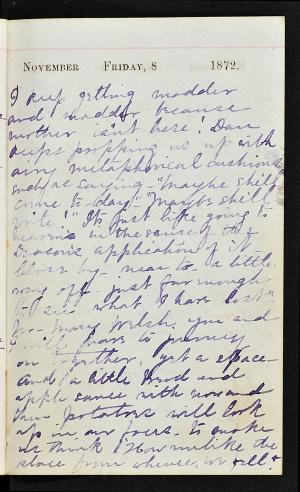 November Friday, 8 1872.
I keep getting madder
and madder because
mother isn't here! Dan
keeps propping us up with
airy metaphorical cushions
such as saying - "maybe she'll
come to-day" "Maybe she'll
write!" It's just like going to
in the sense of the
application of it
close by - near to - a little
way off - just far enough
to see what I have lost"
Mary Welsh, you and
I will have to journey
on together, yet a space -
and a little bread and
apple sauce with now and
then potatoes will look
up in our faces - to make
us think "How unlike the
place from whence we fell!"